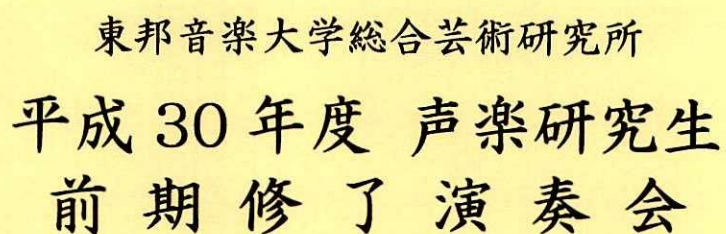 東邦音楽大学総合芸術研究所
平成 30 年度 声楽研究生
前期修了演奏会